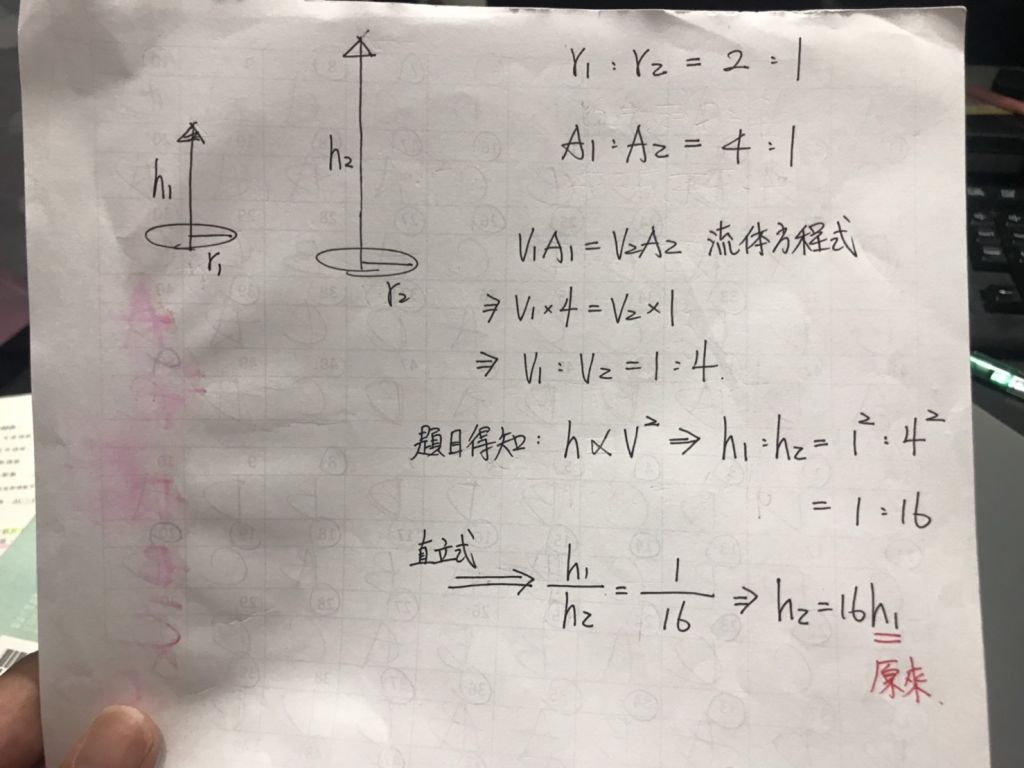 h₁
r₁
h₂
r₂
r₁ : r₂ = 2 : 1
A₁ : A₂ = 4 : 1
V₁A₁ = V₂A₂ 流体方程式
⇒ V₁×4 = V₂×1
⇒ V₁ : V₂ = 1 : 4.
題目得知: h∝V² ⇒ h₁:h₂ = 1² : 4²
= 1 : 16
直立式 ⇒ h₁/h₂ = 1/16 ⇒ h₂=16h₁
原來.